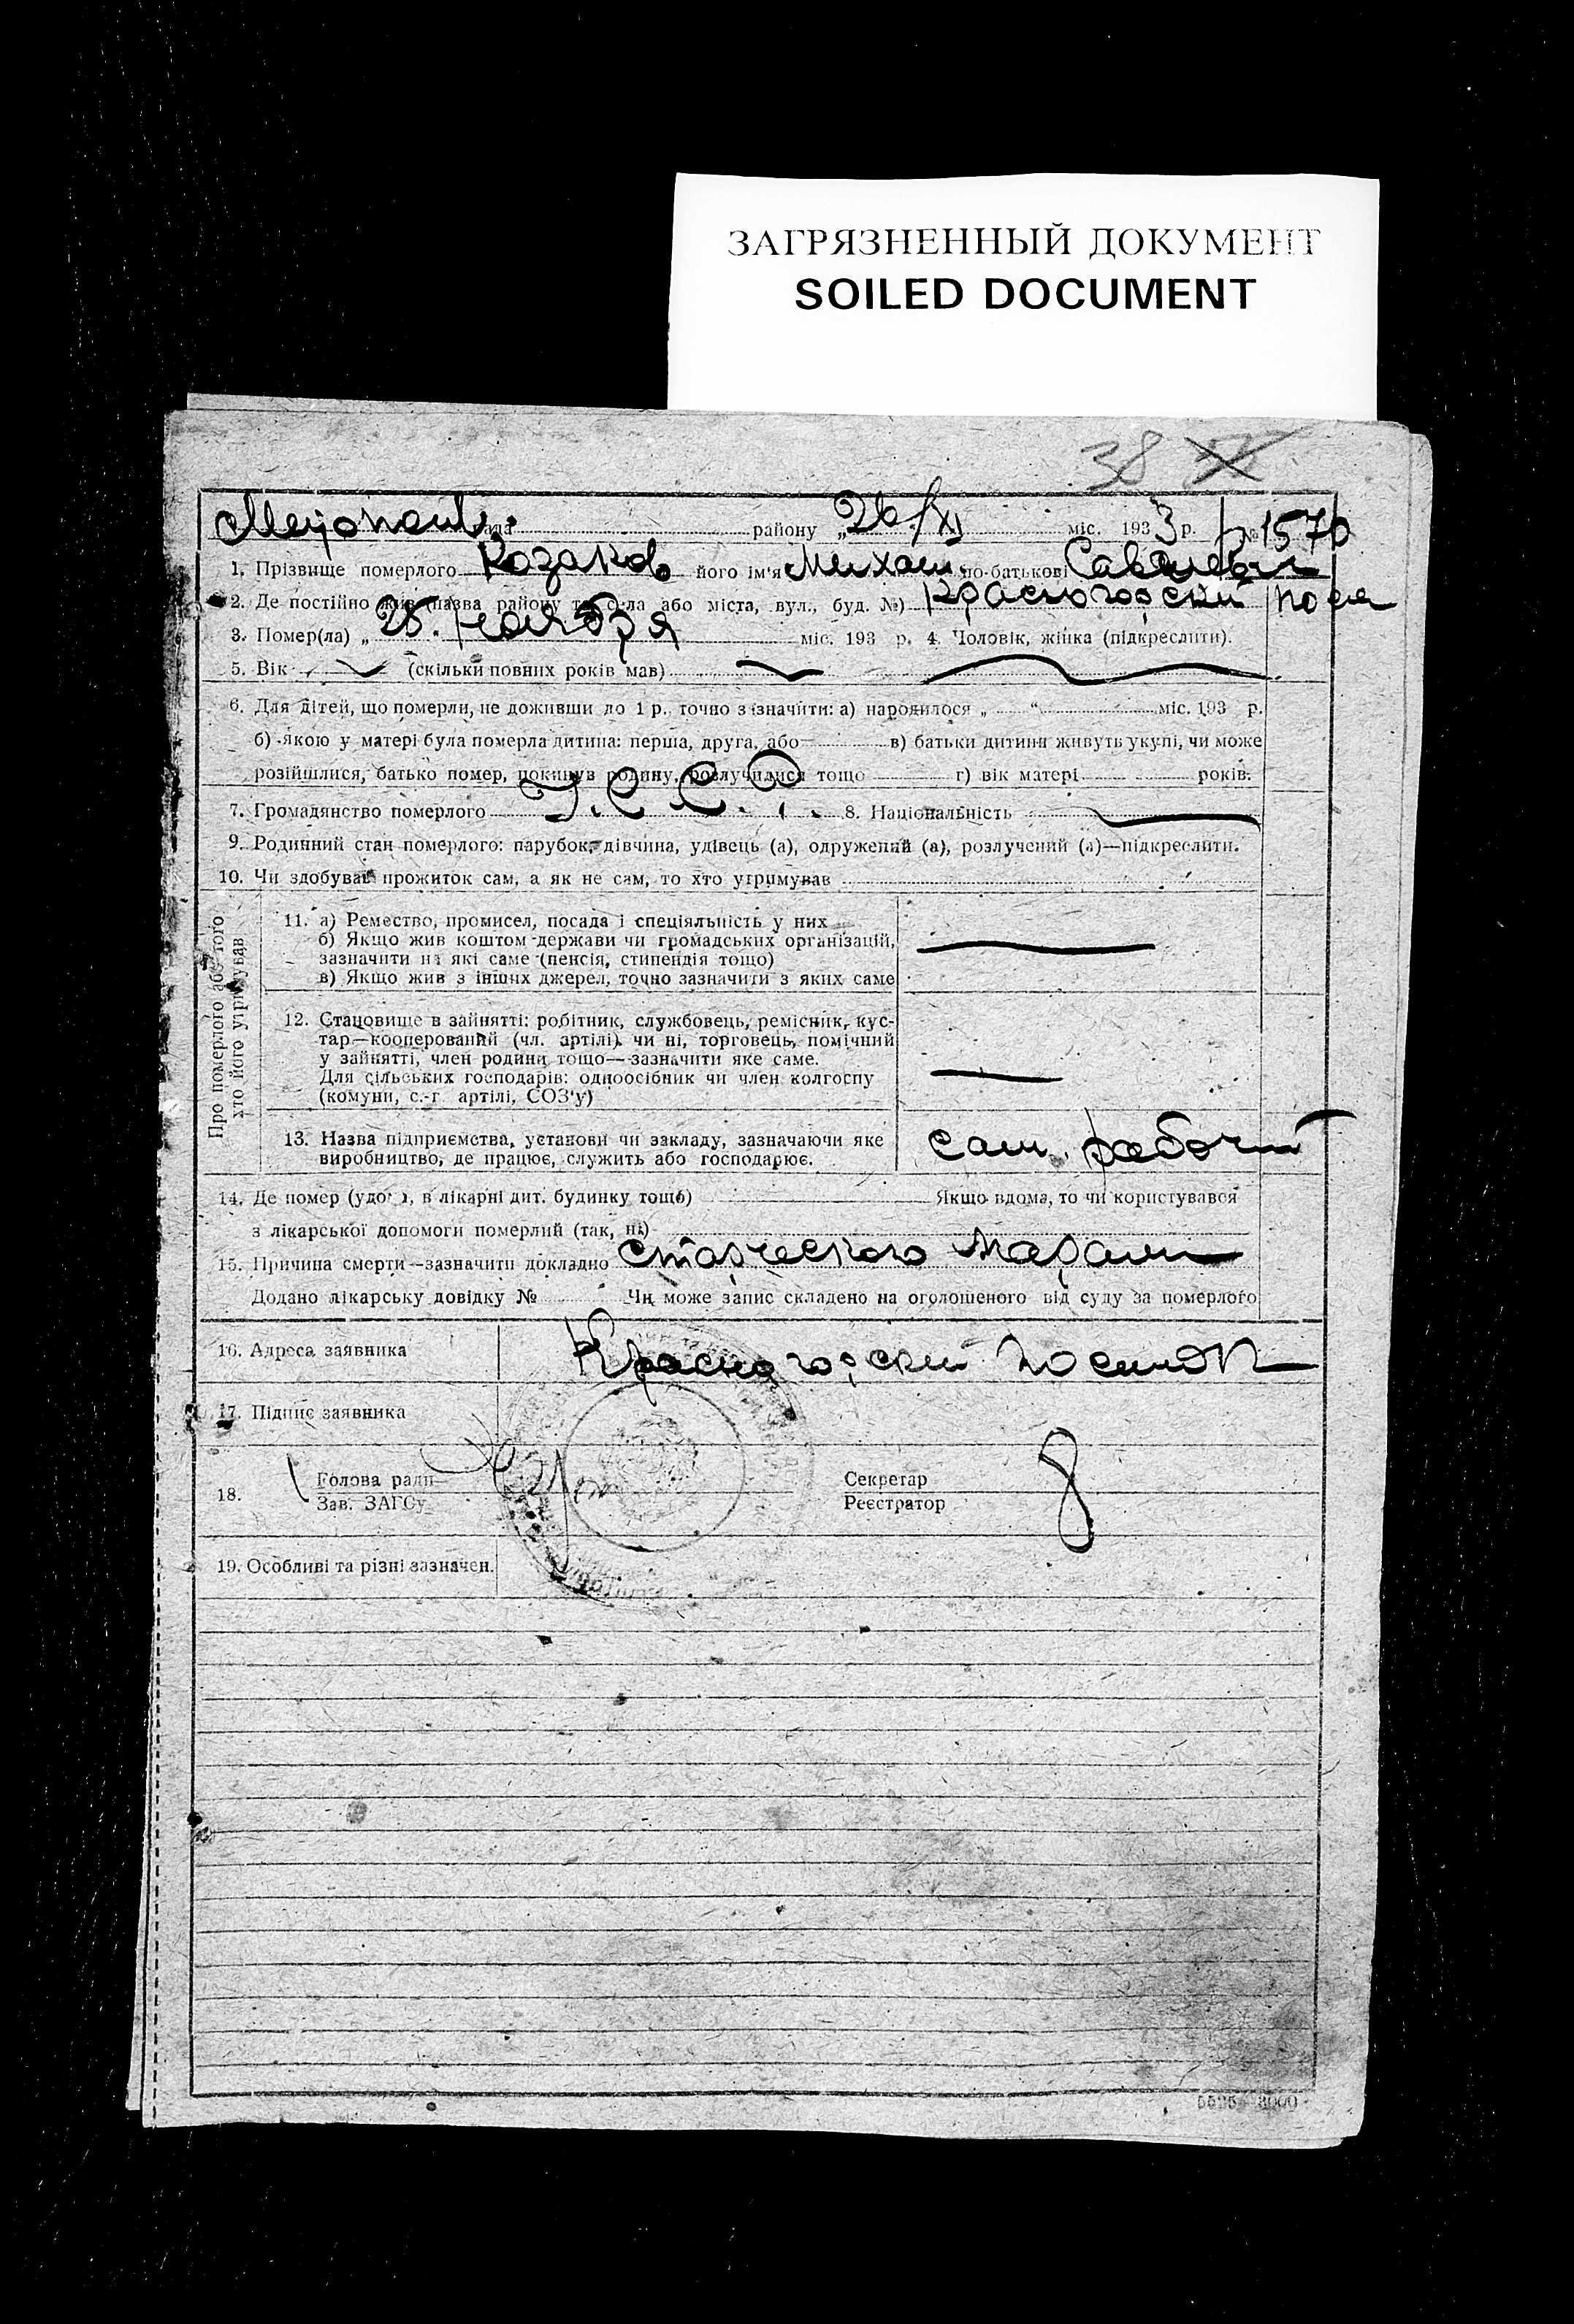 ЗАГРЯЗНЕННЫЙ ДОКУМЕНТ
SOILED DOCUMENT
38
району „26/XI міс. 1933 р. № 1570
1. Прізвище померлого Козаков його ім'я Михаил по-батькові Савельевич
2. Де постійно жив (назва району та села або міста, вул., буд. №) Красногорский посел
3. Помер(ла) „25. ноября міс. 193 р. 4. Чоловік, жінка (підкреслити).
5. Вік (скільки повних років мав)
6. Для дітей, що померли, не доживши до 1 р., точно зазначити: а) народилося „ “ міс. 193 р.
б) якою у матері була померла дитина: перша, друга, або в) батьки дитини живуть укупі, чи може
розійшлися, батько помер, покинув родину, розлучилися тощо г) вік матері років.
7. Громадянство померлого У.С.С.Р. 8. Національність
9. Родинний стан померлого: парубок, дівчина, удівець (а), одружений (а), розлучений (а)—підкреслити.
10. Чи здобував прожиток сам, а як не сам, то хто утримував
Про померлого або того
хто його утримував
11. а) Ремество, промисел, посада і спеціяльність у них
б) Якщо жив коштом держави чи громадських організацій,
зазначити на які саме (пенсія, стипендія тощо)
в) Якщо жив з інших джерел, точно зазначити з яких саме
12. Становище в зайнятті: робітник, службовець, ремісник, кус-
тар—кооперований (чл. артілі) чи ні, торговець, помічний
у зайнятті, член родини тощо—зазначити яке саме.
Для сільських господарів: одноосібник чи член колгоспу
(комуни, с.-г артілі, СОЗ'у)
13. Назва підприємства, установи чи закладу, зазначаючи яке
виробництво, де працює, служить або господарює.
сам. рабочий
14. Де помер (удома, в лікарні дит. будинку тощо) Якщо вдома, то чи користувався
з лікарської допомоги померлий (так, ні)
15. Причина смерти—зазначити докладно старческого маразми
Додано лікарську довідку № Чи може запис складено на оголошеного від суду за померлого
16. Адреса заявника Красногорский поселок
17. Підпис заявника
18. Голова ради
Зав. ЗАГСу
Секретар
Реєстратор
19. Особливі та різні зазначен.